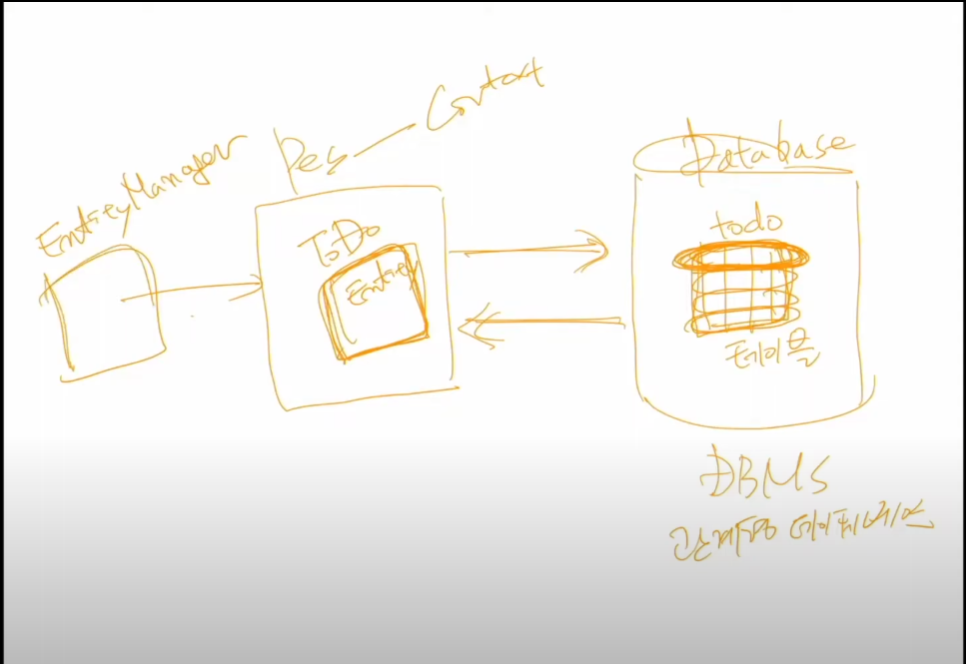 EntityManager
Per Context
ToDo
Entity
Database
todo
테이블
DBMS
관계형 데이터베이스